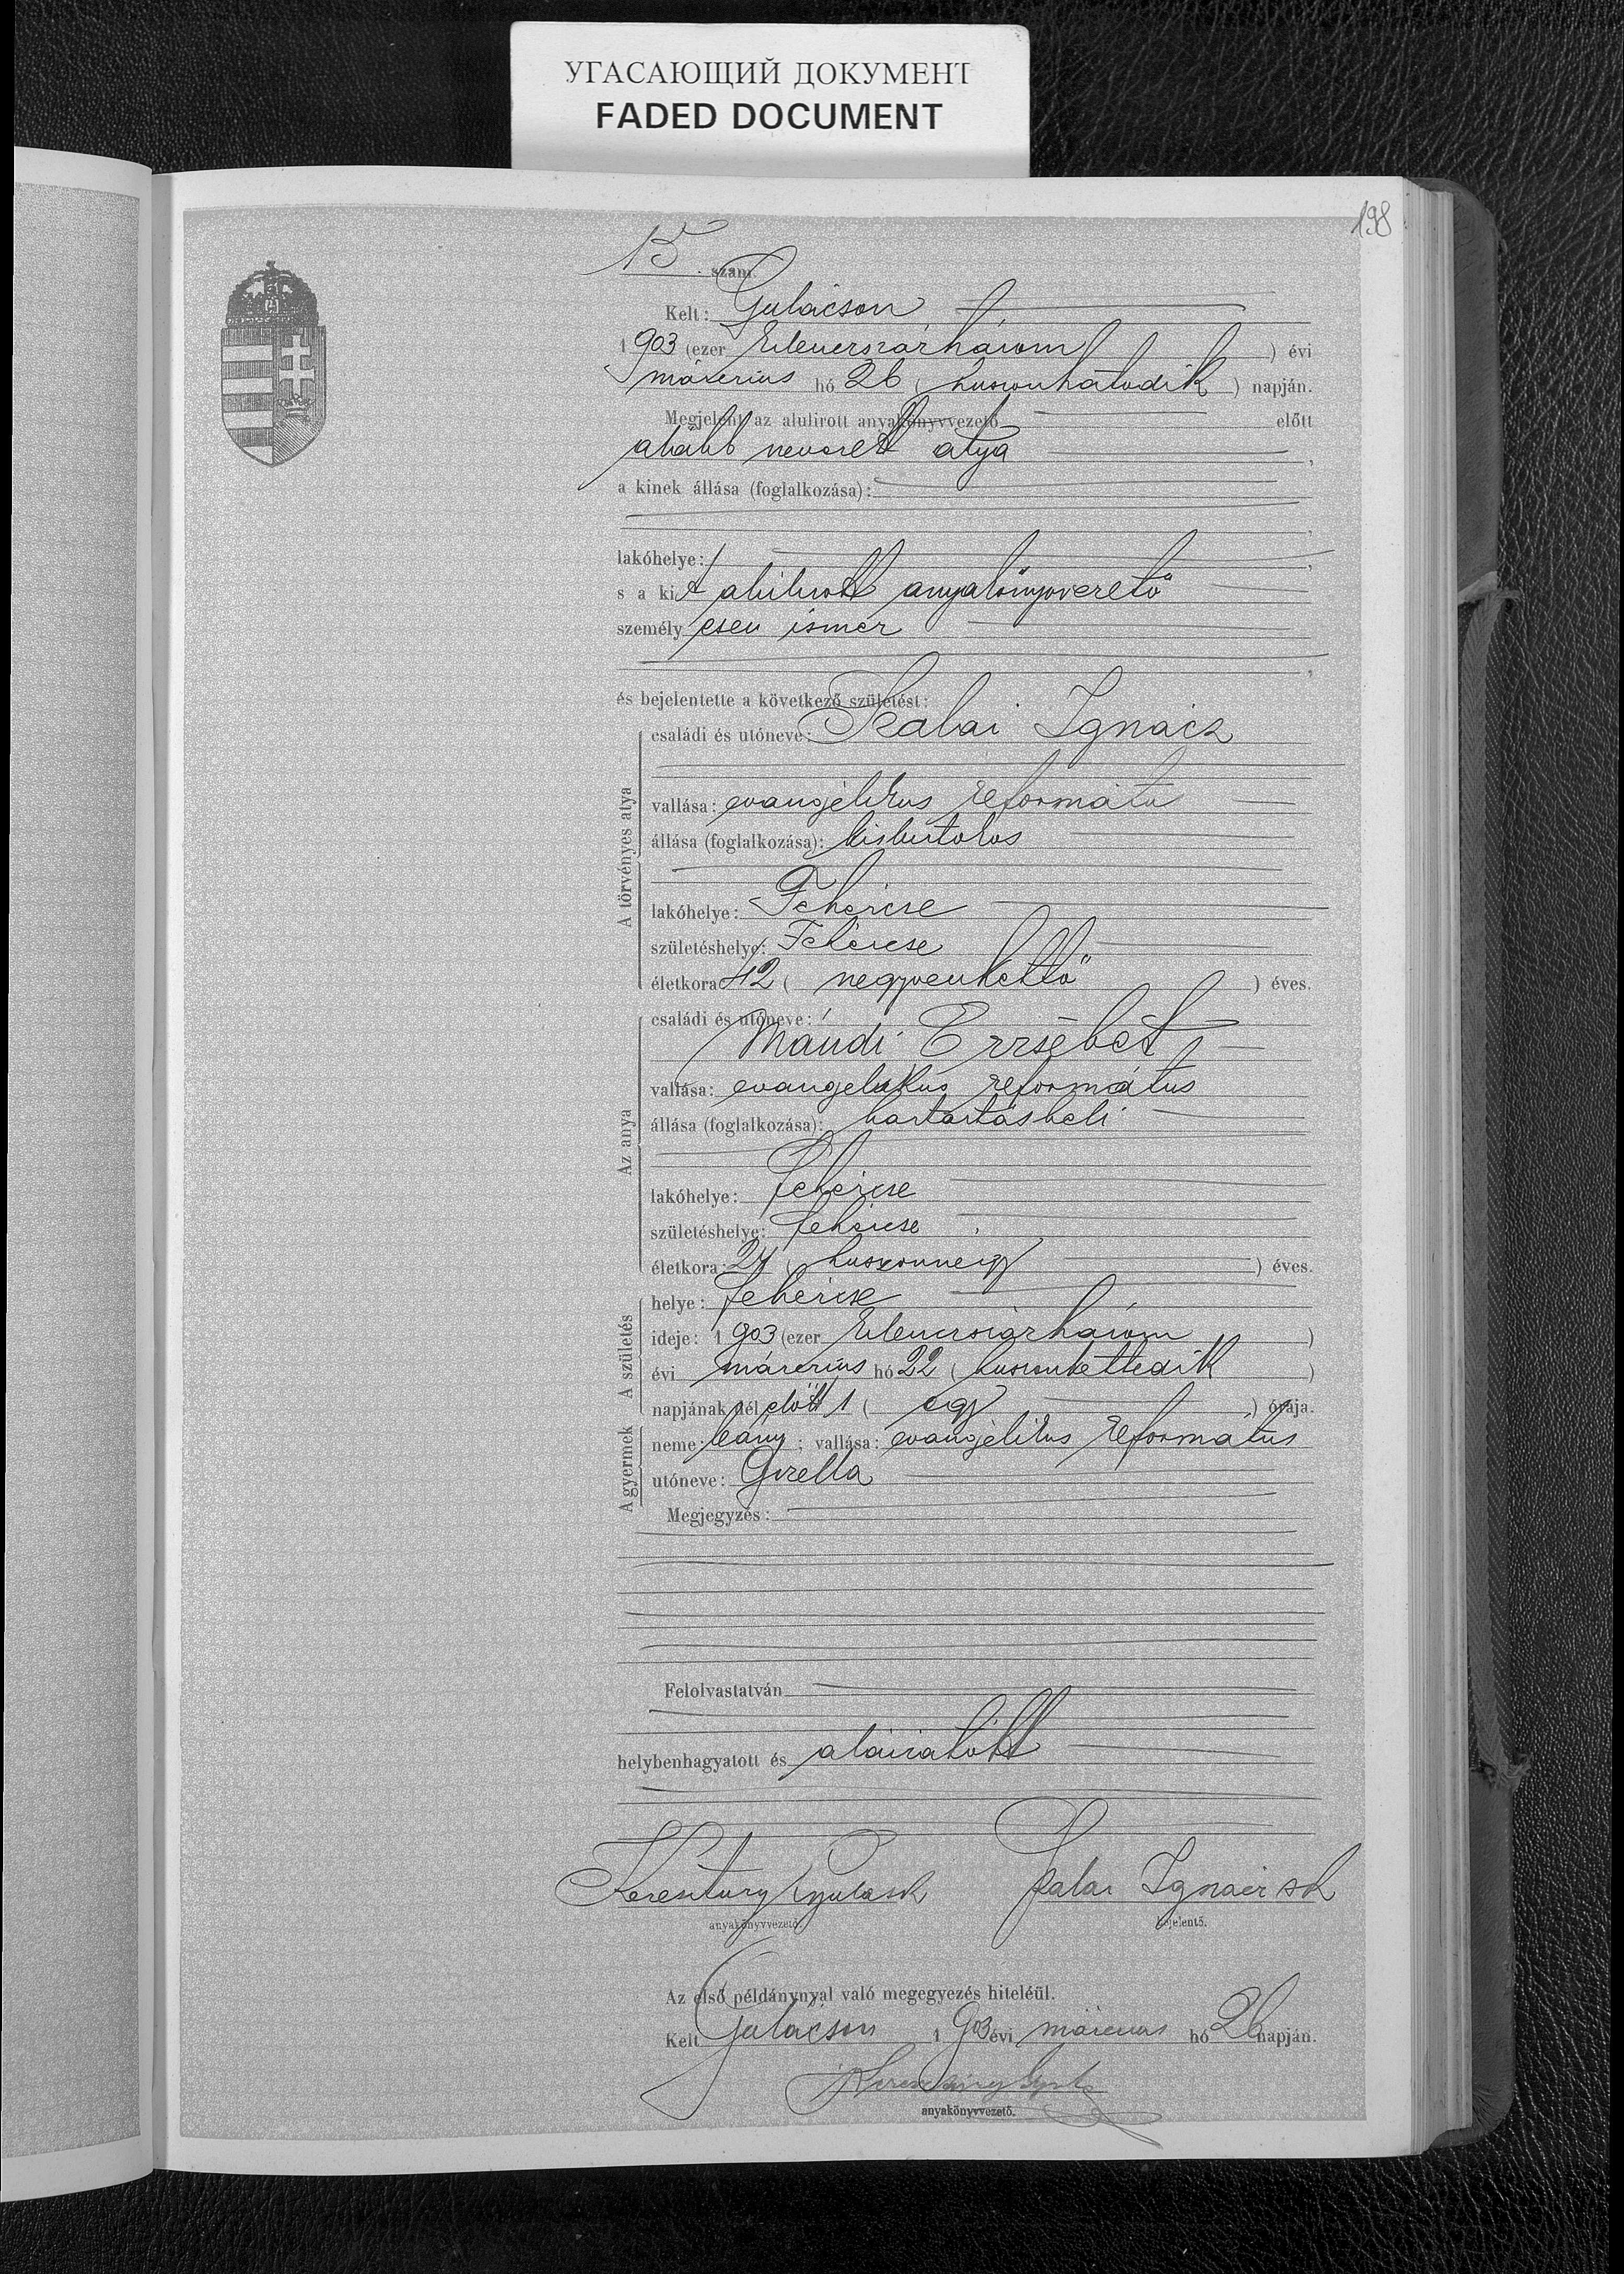 УГАСАЮЩИЙ ДОКУМЕНТ
FADED DOCUMENT
198
15. szám.
Kelt: Gulácson
1903 (ezer kilenczszázhárom) évi
márczius hó 26 (huszonhatodik) napján.
Megjelent az alulirott anyakönyvvezető előtt
alább nevezett atya,
a kinek állása (foglalkozása):
lakóhelye:
s a kit alulirott anyakönyvvezető
személyesen ismer
és bejelentette a következő születést:
A törvényes atya
családi és utóneve: Szalai Ignácz
vallása: evangélikus református
állása (foglalkozása): kisbirtokos
lakóhelye: Fehércse
születéshelye: Fehércse
életkora: 42 (negyvenkettő) éves.
Az anya
családi és utóneve:
Mándi Erzsébet
vallása: evangelikus református
állása (foglalkozása): háztartásbeli
lakóhelye: Fehércse
születéshelye: Fehércse
életkora: 24 (huszonnegy) éves.
A születés
helye: Fehércse
ideje: 1903 (ezer kilenczszázhárom)
évi márczius hó 22 (huszonkettedik)
napjának dél előtt 1 (egy) órája.
A gyermek
neme: leány; vallása: evangélikus református
utóneve: Gizella
Megjegyzés:
Felolvastatván
helybenhagyatott és aláiratott
Keresztury Gyula sk Szalai Ignácz sk
anyakönyvvezető. bejelentő.
Az első példánynyal való megegyezés hiteléül.
Kelt Gulácson 1903 évi márczius hó 26 napján.
Keresztury Gyula
anyakönyvvezető.